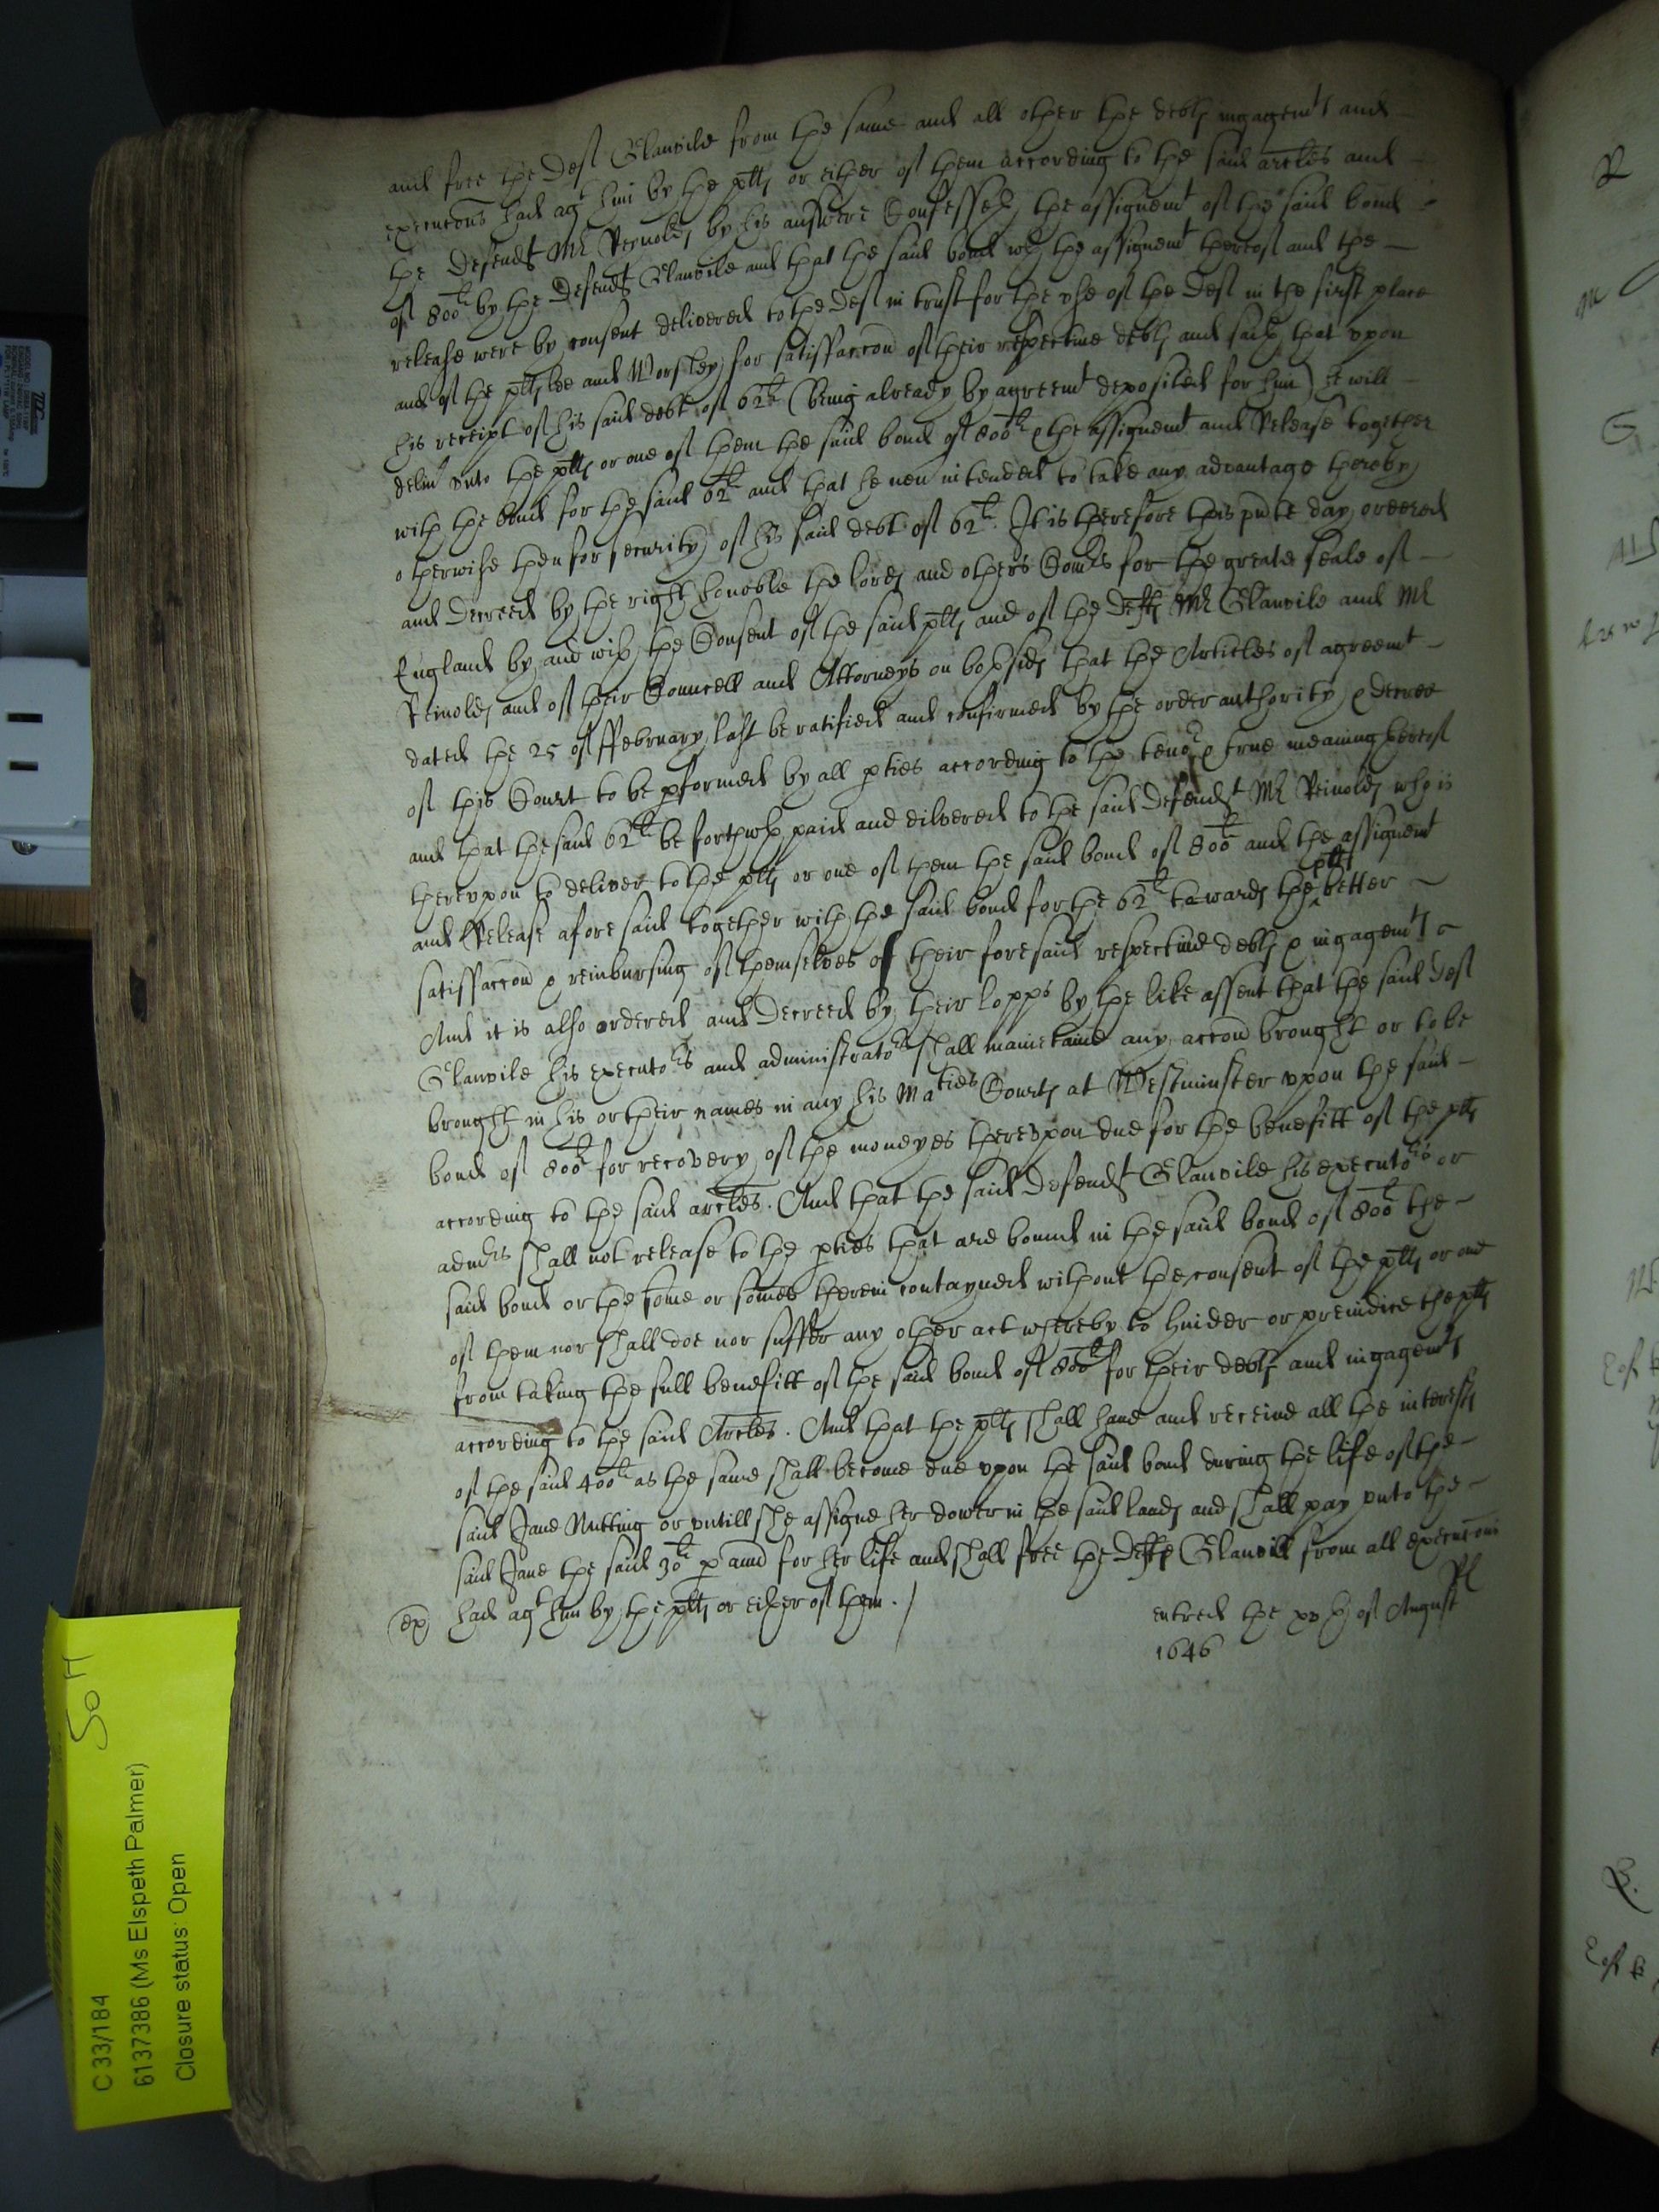 and free the Deft Glanvile from the same and all other the debts ingagemts and
execucons had agt him by the plts or either of them according to the said arcles and
the Defendt Mr Reynolds by his answere Confesseth the assignemt of the said bond
of 800li by the Defendt Glanvile and that the said bond wth the assignemt thereof and the
release were by consent delivered to the Deft in trust for the vse of the Deft in the first place
and of the plts Lee and Worsley for satisfaccon of their respective debts and saith that vpon
his receipt of his said debt of 62li (being already by agreemt deposited for him) he will
deliuer vnto the plts or one of them the said bond of 800li & the assignemt and Release together
with the bond for the said 62li and that he neu intended to take any advantage thereby
otherwise then for security of his said debt of 62li. It is therefore this pnte day ordered
and Decreed by the right honoble the lords and others Comrs for the greate seale of
England by and with the Consent of the said plts and of the Defts Mr Glanvile and Mr
Reinolds and of their Councell and Attorneys on both sids that the Articles of agreemt
dated the 25 of ffebruary last be ratified and confirmed by the order authority & decree
of this Court to be pformed by all pties according to the tenor & true meaning thereof
and that the said 62li be forthwth paid and dilvered to the said Defendt Mr Reinolds who is
therevpon to deliver to the plts or one of them the said bond of 800li and the assignemt
and Release aforesaid together with the said bond for the 62li towards the plts better
satisfaccon & reinbursing of themselves of their foresaid respective debts & ingagemts
And it is also ordered and Decreed by their lopps by the like assent that the said Deft
Glanvile his executors and administrators shall mainetaine any accon brought or to be
brought in his or their names in any his Maties Courts at Westminster vpon the said
bond of 800li for recovery of the moneyes therevpon due for the benefitt of the plts
according to the said arcles. And that the said Defendt Glanvile his executors or
admrs shall not release to the pties that are bound in the said bond of 800li the
said bond or the some or somes therein contayned without the consent of the plts or one
of them nor shall doe nor suffer any other act whereby to hinder or preiudice the plts
from taking the full benefitt of the said bond of 800li for their debts and ingagemts
according to the said Arcles. And that the plts shall haue and receiue all the interests
of the said 400li as the same shall become due vpon the said bond during the life of the
said Jane Nutting or vntill she assigne her dower in the said lands and shall pay vnto the
said Jane the said 30li p annu for her life and shall free the Defte Glanvill from all execucons
had agt him by the plts or either of them.
ex
Rl
entred the xvth of August
1646
SoH
C 33/184
6137386 (Ms Elspeth Palmer)
Closure status: Open